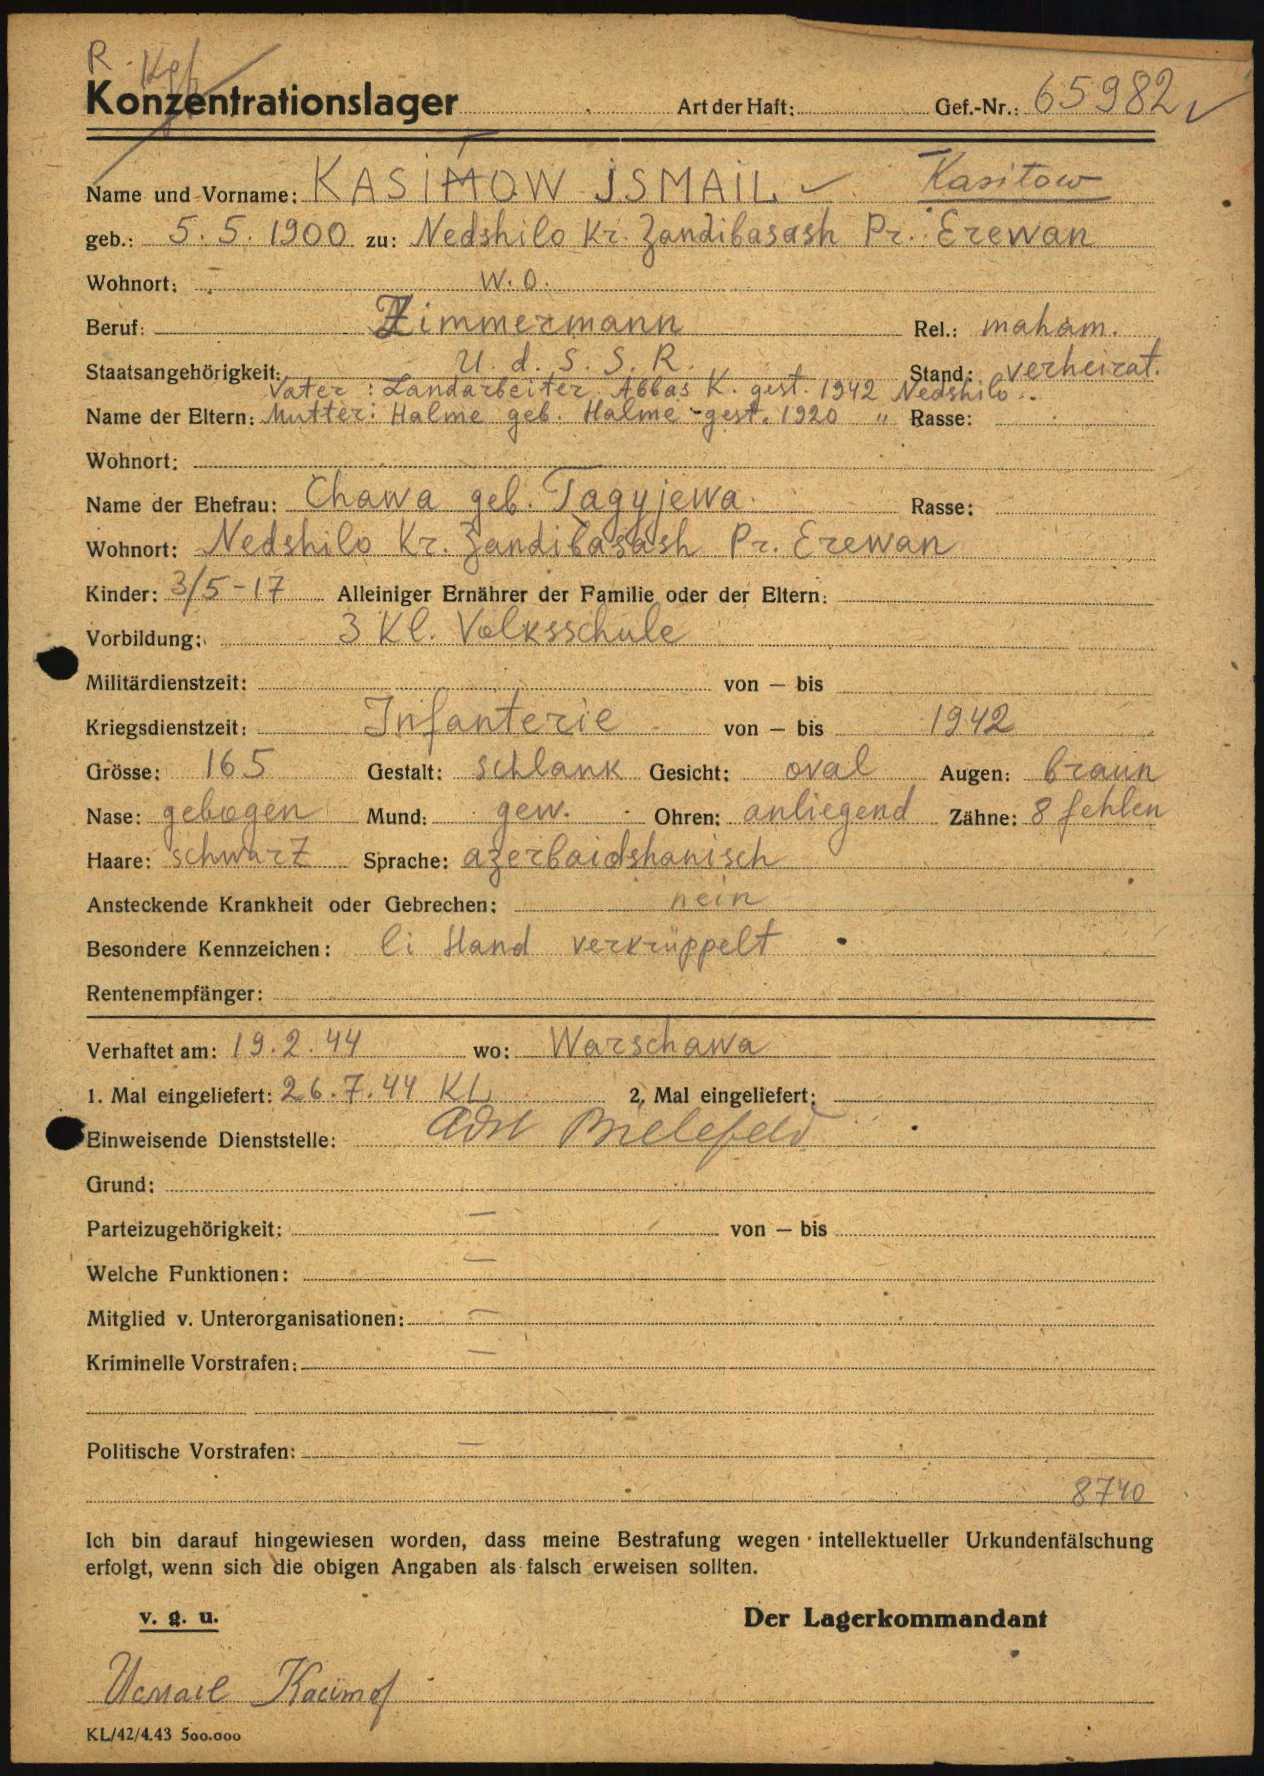 R. Kgf.
Konzentrationslager Art der Haft: Gef.-Nr.: 65982
Name und Vorname: KASIMOW ISMAIL Kasitow
geb.: 5. 5. 1900 zu: Nedshilo Kr. Zandibasash Pr. Erewan
Wohnort: w. o.
Beruf: Zimmermann Rel.: maham.
Staatsangehörigkeit: U. d. S. S. R. Stand: verheirat.
Vater: Landarbeiter Abbas K. gest. 1942 Nedshilo
Name der Eltern: Mutter: Halme geb. Halme - gest. 1920 " Rasse:
Wohnort:
Name der Ehefrau: Chawa geb. Tagyjewa Rasse:
Wohnort: Nedshilo Kr. Zandibasash Pr. Erewan
Kinder: 3/5-17 Alleiniger Ernährer der Familie oder der Eltern:
Vorbildung: 3 Kl. Volksschule
Militärdienstzeit: von — bis
Kriegsdienstzeit: Infanterie von — bis 1942
Grösse: 165 Gestalt: schlank Gesicht: oval Augen: braun
Nase: gebogen Mund: gew. Ohren: anliegend Zähne: 8 fehlen
Haare: schwarz Sprache: azerbaidshanisch
Ansteckende Krankheit oder Gebrechen: nein
Besondere Kennzeichen: li Hand verkrüppelt
Rentenempfänger:
Verhaftet am: 19. 2. 44 wo: Warschawa
1. Mal eingeliefert: 26. 7. 44 KL 2. Mal eingeliefert:
Einweisende Dienststelle: Bielefeld
Grund:
Parteizugehörigkeit: — von — bis
Welche Funktionen: —
Mitglied v. Unterorganisationen: —
Kriminelle Vorstrafen: —
Politische Vorstrafen: —
8740
Ich bin darauf hingewiesen worden, dass meine Bestrafung wegen intellektueller Urkundenfälschung
erfolgt, wenn sich die obigen Angaben als falsch erweisen sollten.
v. g. u. Der Lagerkommandant
KL/42/4.43 500.000